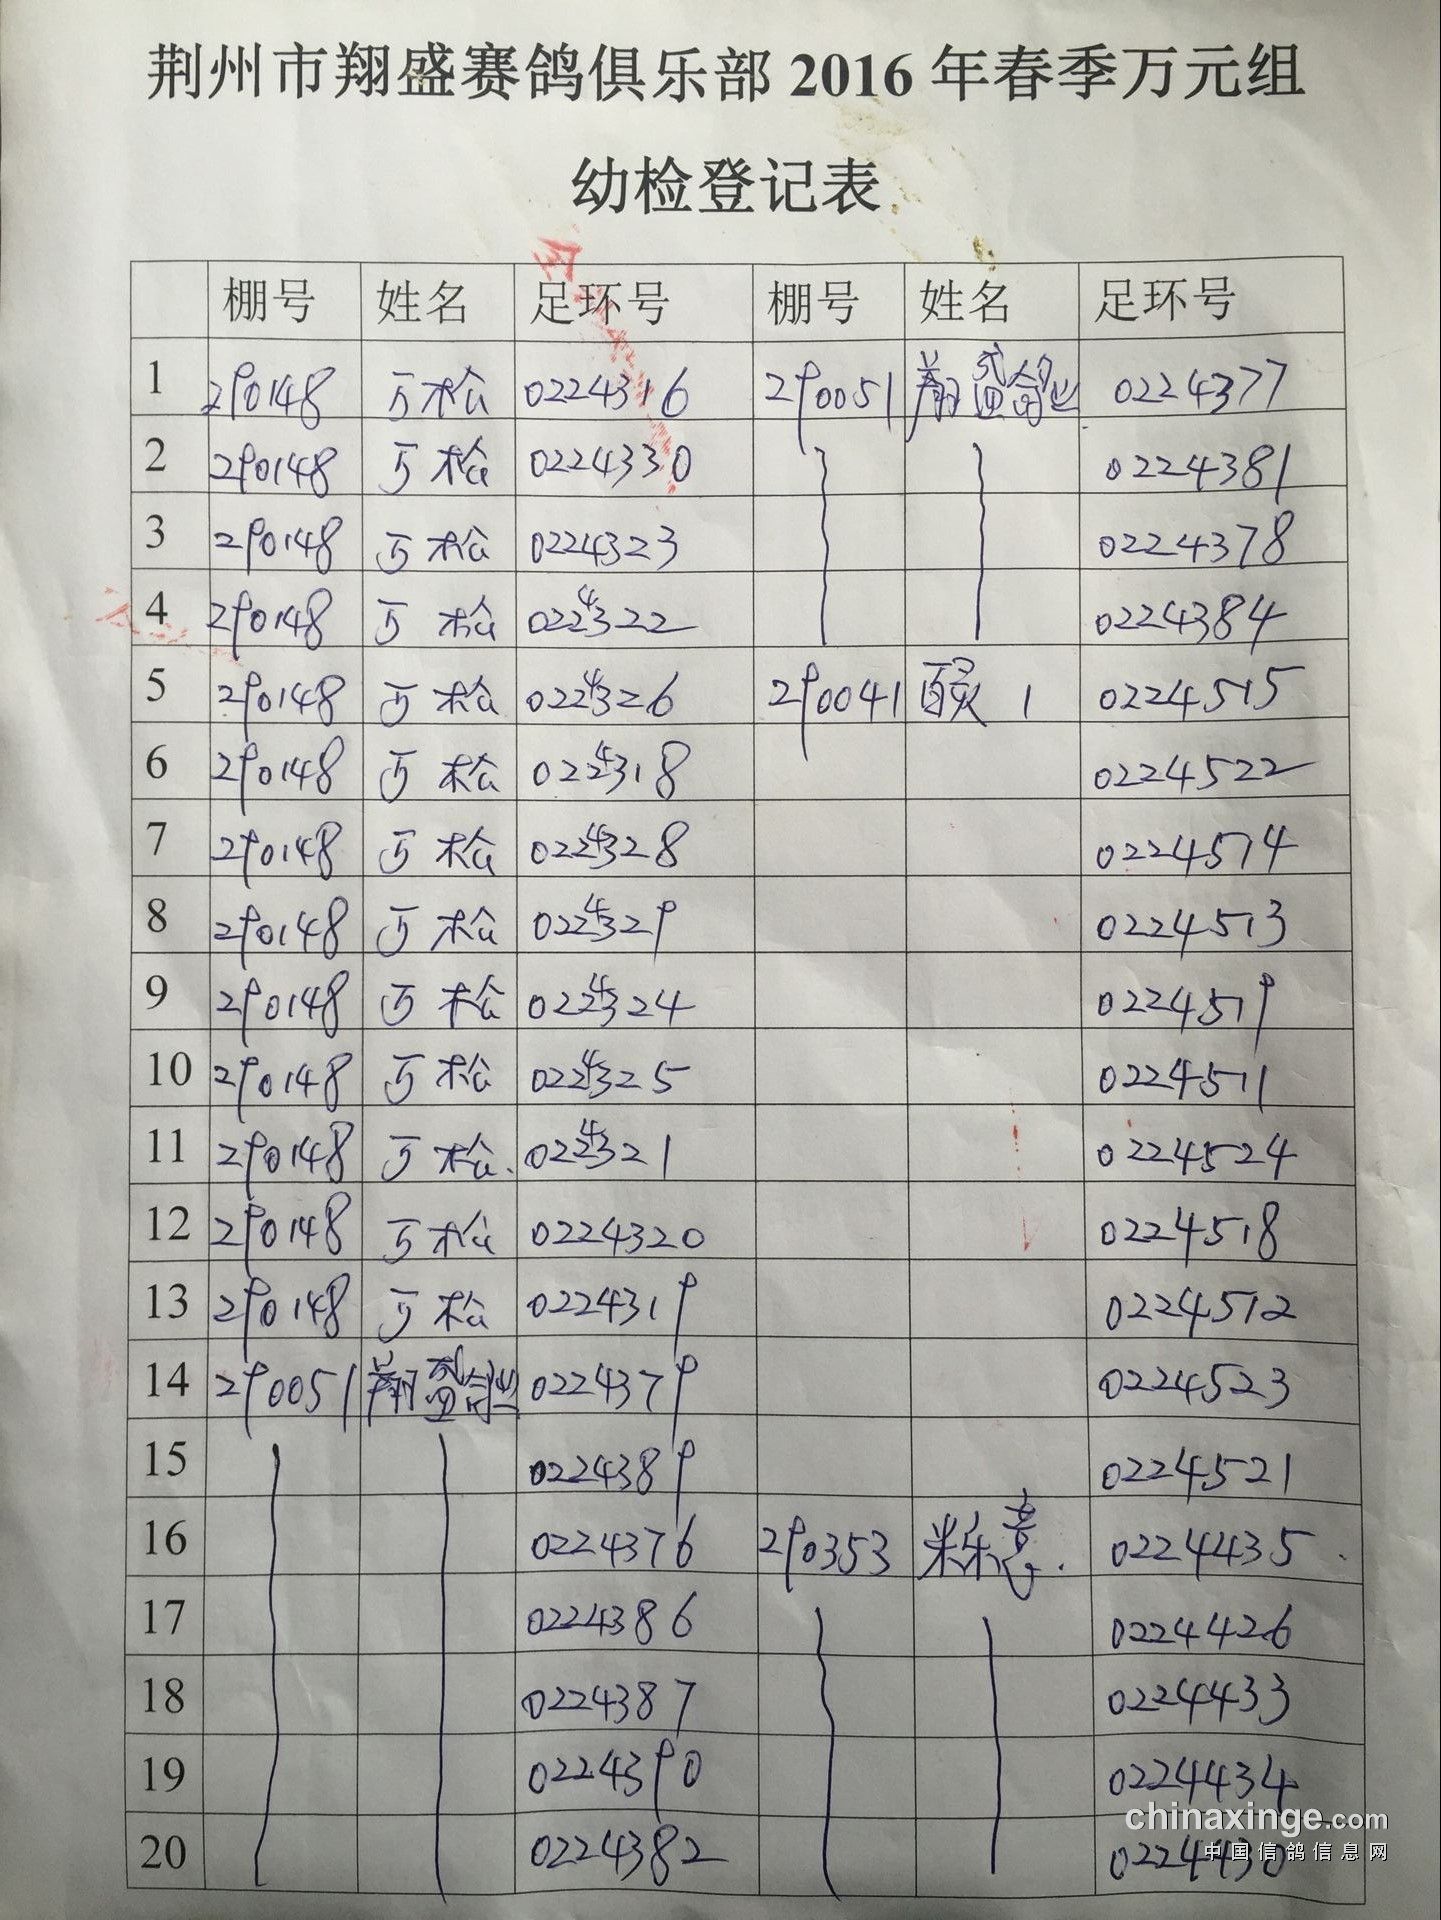 荆州市翔盛赛鸽俱乐部 2016 年春季万元组
幼检登记表
棚号 姓名 足环号 棚号 姓名 足环号
1 290148 万松 0224316 290051 翔盛鸽业 0224377
2 290148 万松 0224330 0224381
3 290148 万松 0224323 0224378
4 290148 万松 0224322 0224384
5 290148 万松 0224326 290041 1 0224515
6 290148 万松 0224318 0224522
7 290148 万松 0224328 0224514
8 290148 万松 0224329 0224513
9 290148 万松 0224324 0224519
10 290148 万松 0224325 0224511
11 290148 万松 0224321 0224524
12 290148 万松 0224320 0224518
13 290148 万松 0224319 0224512
14 290051 翔盛鸽业 0224379 0224523
15 0224389 0224521
16 0224376 290353 米乐意 0224435
17 0224386 0224426
18 0224387 0224433
19 0224390 0224434
20 0224382 0224430
chinaxinge.com
中国信鸽信息网